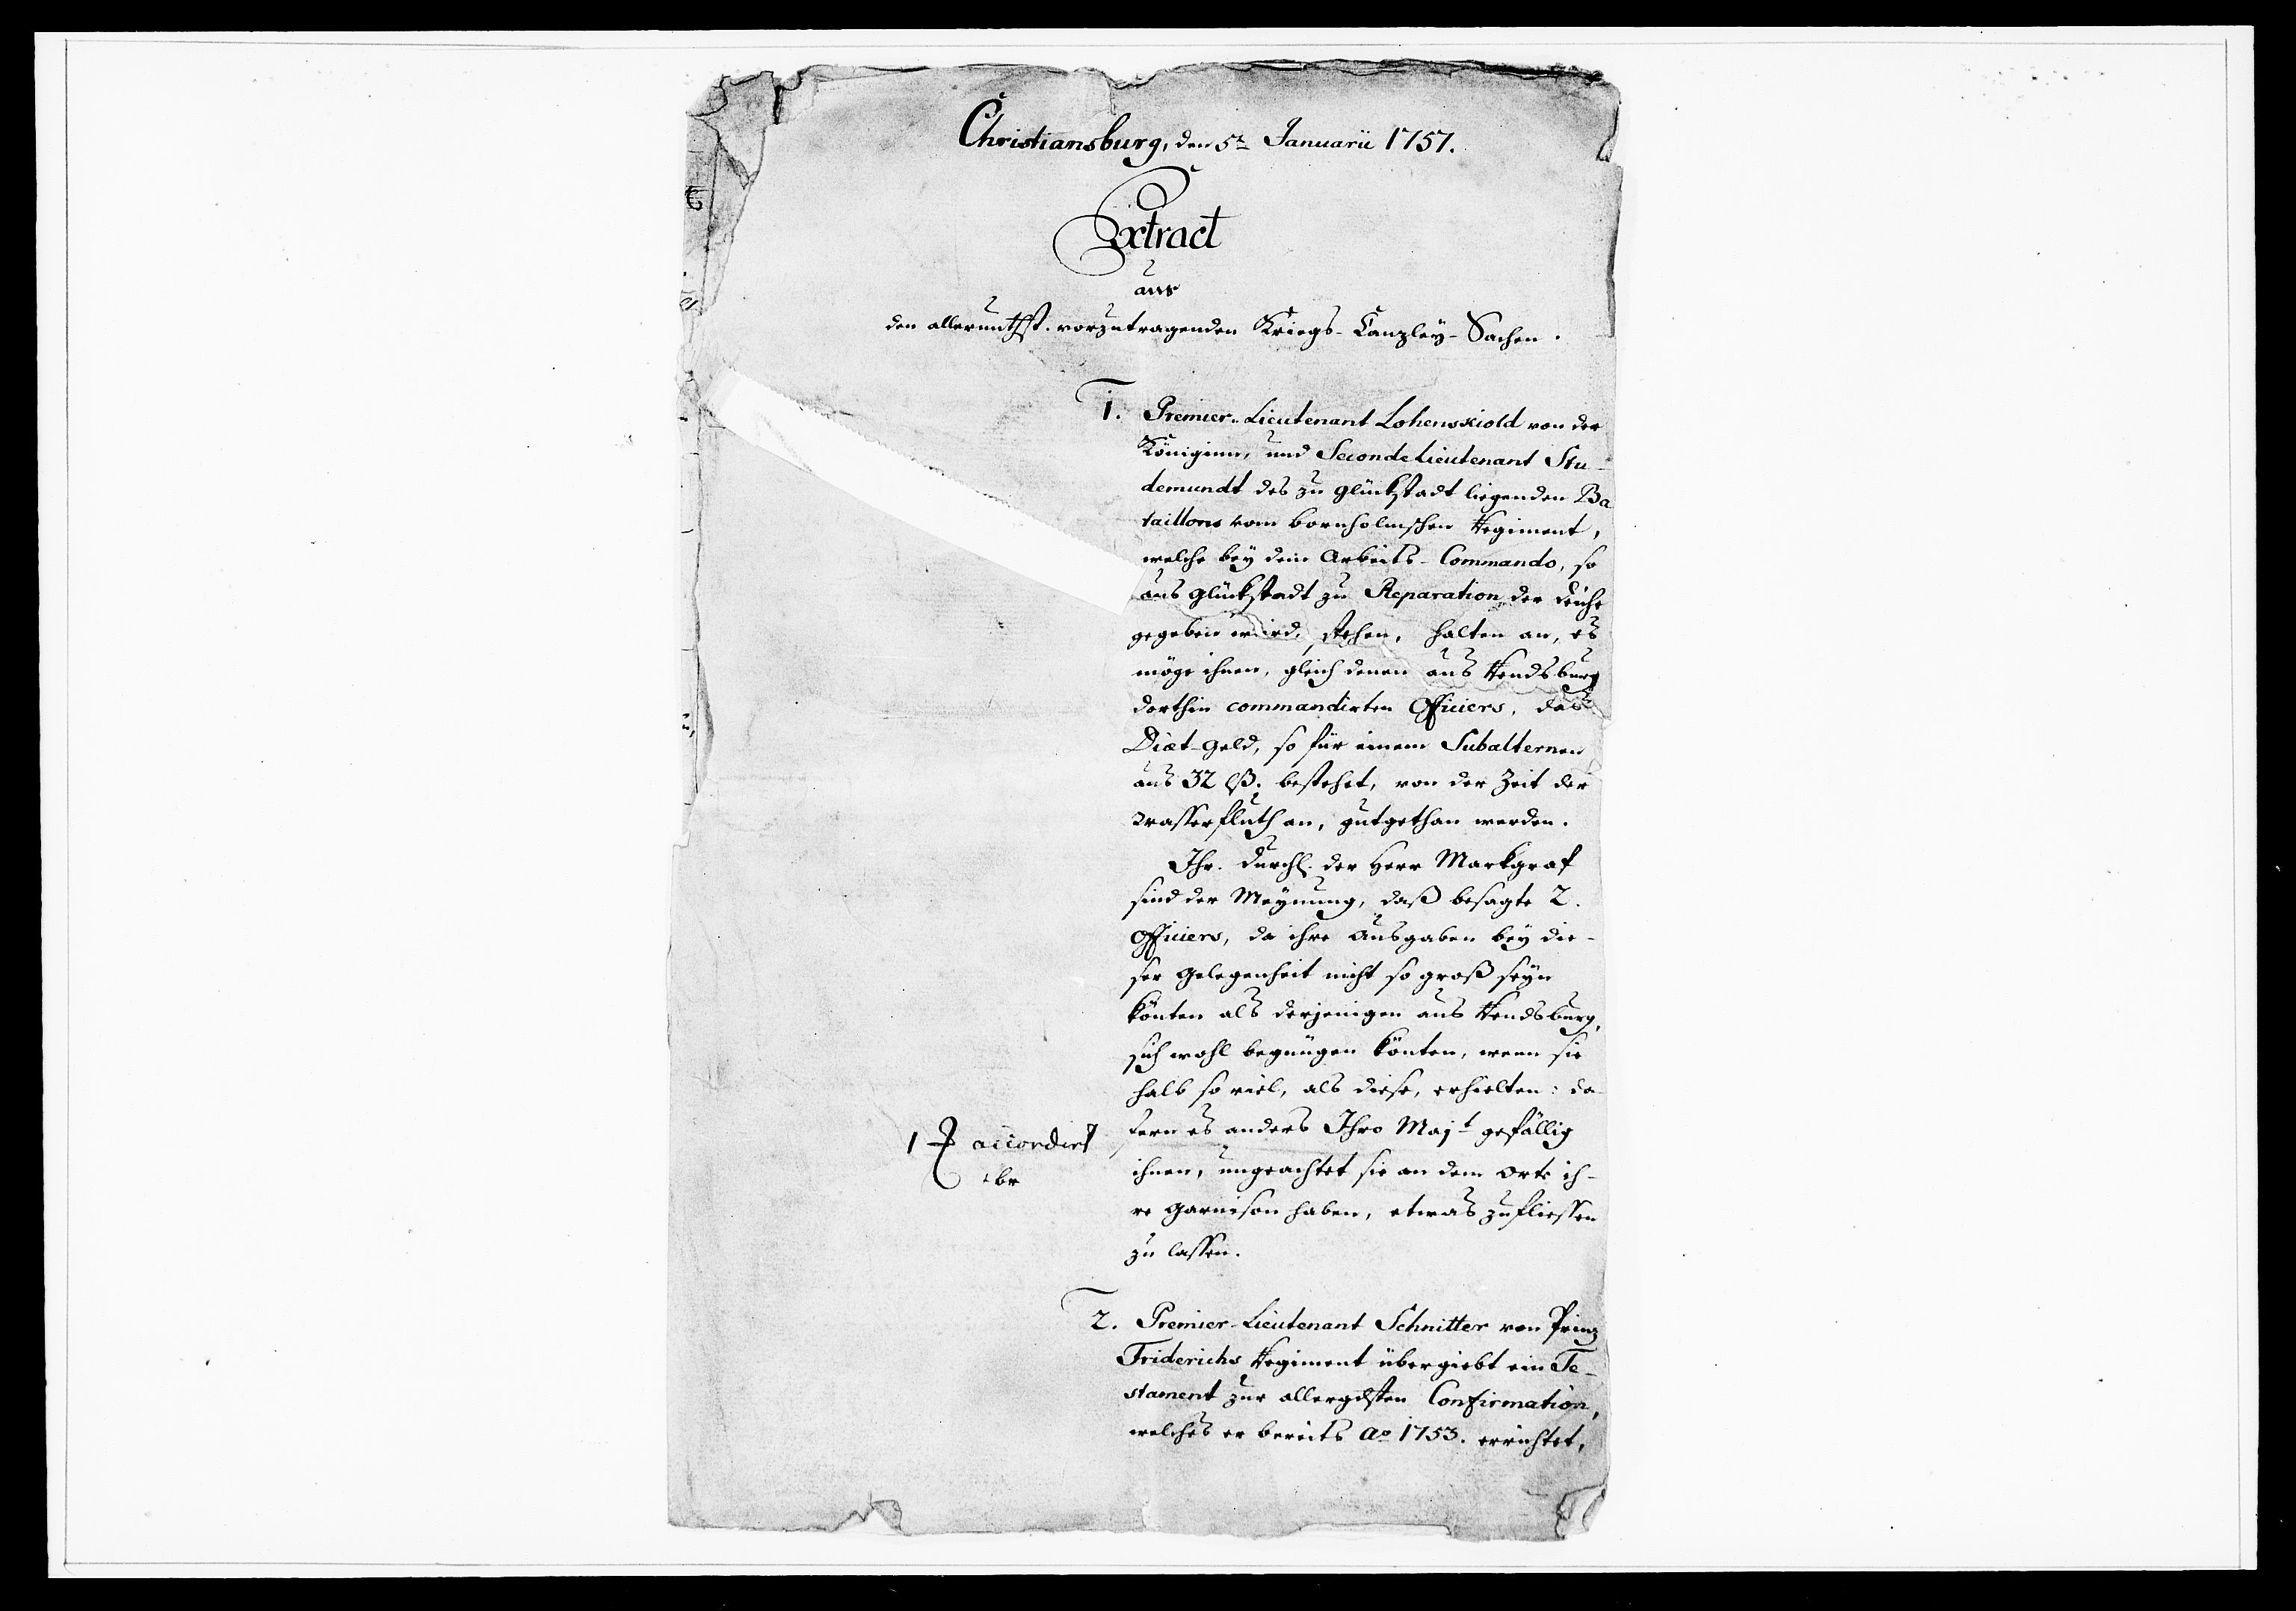 Christiansburg, den 5t Januarii 1757.
Extract
aus
den allerunthst. vorzutragenden Kriegs-Canzley-Sachen.
1. Premier-Lieutenant Lohenskiold von der
Königinn, und Seconde Lieutenant Stu-
demundt des zu Glückstadt liegenden Ba
taillons vom bornholmschen Regiment,
welche bey dem Arbeits-Commando, so
aus Glückstadt zu Reparation der Deiche
gegeben wird, stehen, halten an, es
möge ihnen, gleich denen aus Rendsburg
dorthin commandirten Officiers, das
Diæt-Geld, so für einem Subalternen
aus 32 lß. bestehet, von der Zeit der
Wasserfluth an, gutgethan werden.
Ihr. Durchl. der Herr Markgraf
sind der Meynung, daß besagte 2.
Officiers, da ihre Ausgaben bey die-
ser Gelegenheit nicht so groß seyn
könten als derjenigen aus Rendsburg,
sich wohl begnügen könten, wenn sie
halb so viel, als diese, erhielten: da
fern es anders Ihro Majt gefällig
ihnen, ungeachtet sie an dem Orte ih-
re Garnison haben, etwas zufliessen
zu lassen.
1 accordirt
2. Premier-Lieutenant Schnitter von Prinz
Friderichs Regiment übergiebt ein Te-
stament zur allergdsten Confirmation,
welches er bereits Ao 1753. errichtet,